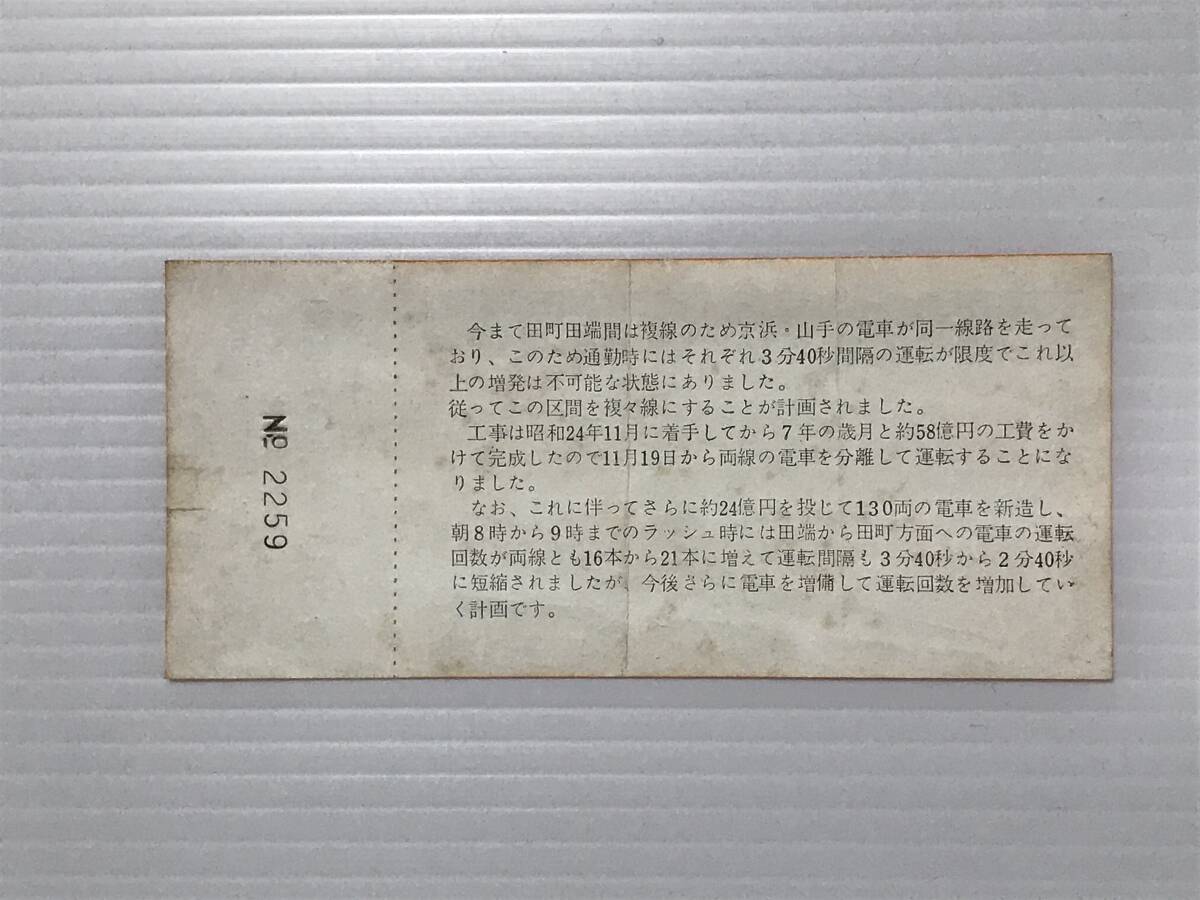 今まで田町田端間は複線のため京浜・山手の電車が同一線路を走って
おり、このため通勤時にはそれぞれ3分40秒間隔の運転が限度でこれ以
上の増発は不可能な状態にありました。
従ってこの区間を複々線にすることが計画されました。
工事は昭和24年11月に着手してから7年の歳月と約58億円の工費をか
けて完成したので11月19日から両線の電車を分離して運転することにな
りました。
なお、これに伴ってさらに約24億円を投じて130両の電車を新造し、
朝8時から9時までのラッシュ時には田端から田町方面への電車の運転
回数が両線とも16本から21本に増えて運転間隔も3分40秒から2分40秒
に短縮されましたが、今後さらに電車を増備して運転回数を増加してい
く計画です。
№ 2259